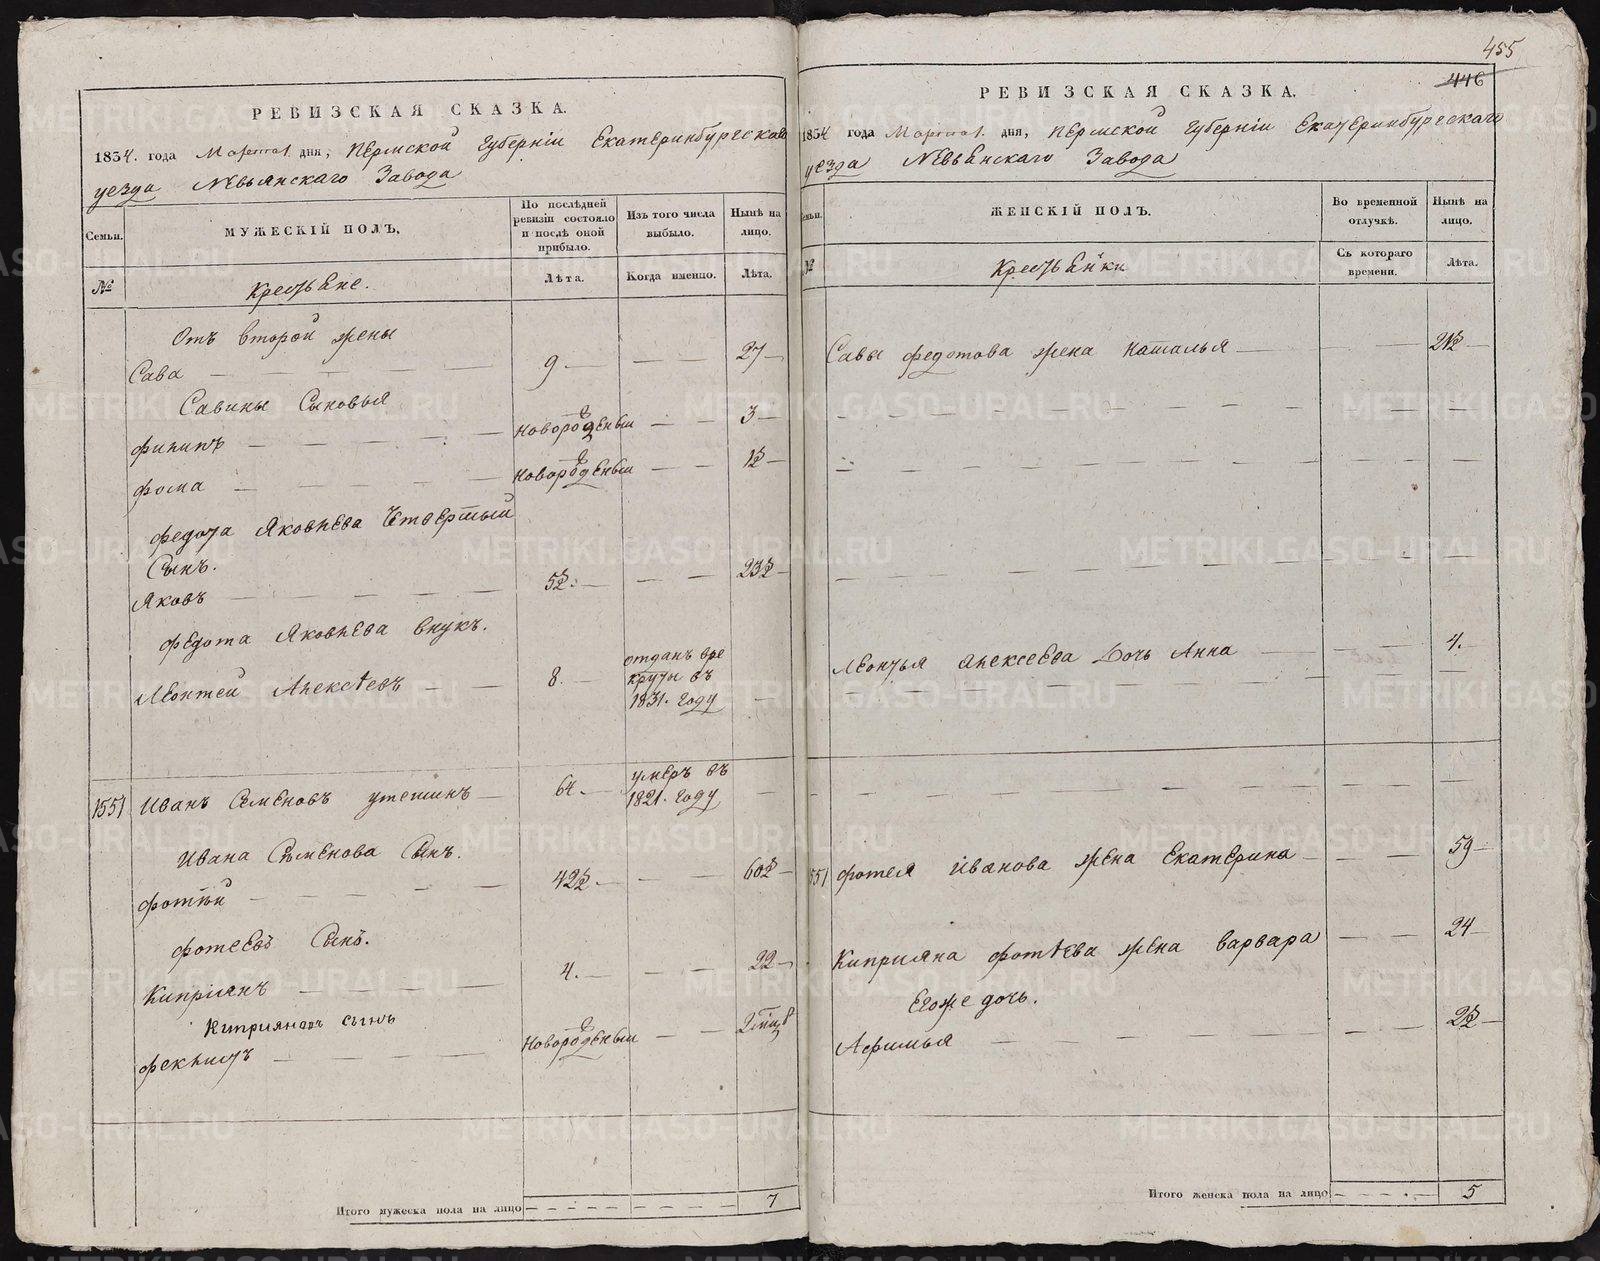 РЕВИЗСКАЯ СКАЗКА.
1834. года Марта дня, Пермской Губерніи Екатеринбургскаго
уезда Невьянскаго Завода
Семьи.
МУЖЕСКІЙ ПОЛЪ,
По послѣдней ревизіи состояло и послѣ оной прибыло.
Изъ того числа выбыло.
Нынѣ на лицо.
№
Крестьяне.
Лѣта.
Когда именно.
Лѣта.
Отъ второй жены
Сава 9 27
Савины Сыновья
Филипъ новорожденный 3
Фома новорожденный 1½
Федота Яковлева Четвертый
Сынъ.
Яковъ 5½. 23½
Федота Яковлева внукъ.
Леонтей Алексѣевъ 8. отданъ в рекруты въ 1831. году
1551 Иванъ Семеновъ Утешинъ 64. умеръ въ 1821. году
Ивана Семенова Сынъ.
Фотѣй 42½ 60½
Фотеевъ Сынъ.
Кипріянъ 4. 22
Киприяновъ сынъ
Феклистъ Новорожденный 2 мѣц
Итого мужеска пола на лицо 7
455
446
РЕВИЗСКАЯ СКАЗКА.
1834 года Марта дня, Пермской Губерніи Екатеринбургскаго
уезда Невьянскаго Завода
Семьи.
ЖЕНСКІЙ ПОЛЪ.
Во временной отлучкѣ.
Нынѣ на лицо.
№
Крестьянки
Съ котораго времени.
Лѣта.
Савы Федотова жена Наталья 21½
Леонтья Алексеева Дочь Анна 4.
551 Фотея Иванова жена Екатерина 59
Киприяна Фотѣева жена Варвара 24
Егоже дочь.
Афимья 2½
Итого женска пола на лицо 5
METRIKI.GASO-URAL.RU